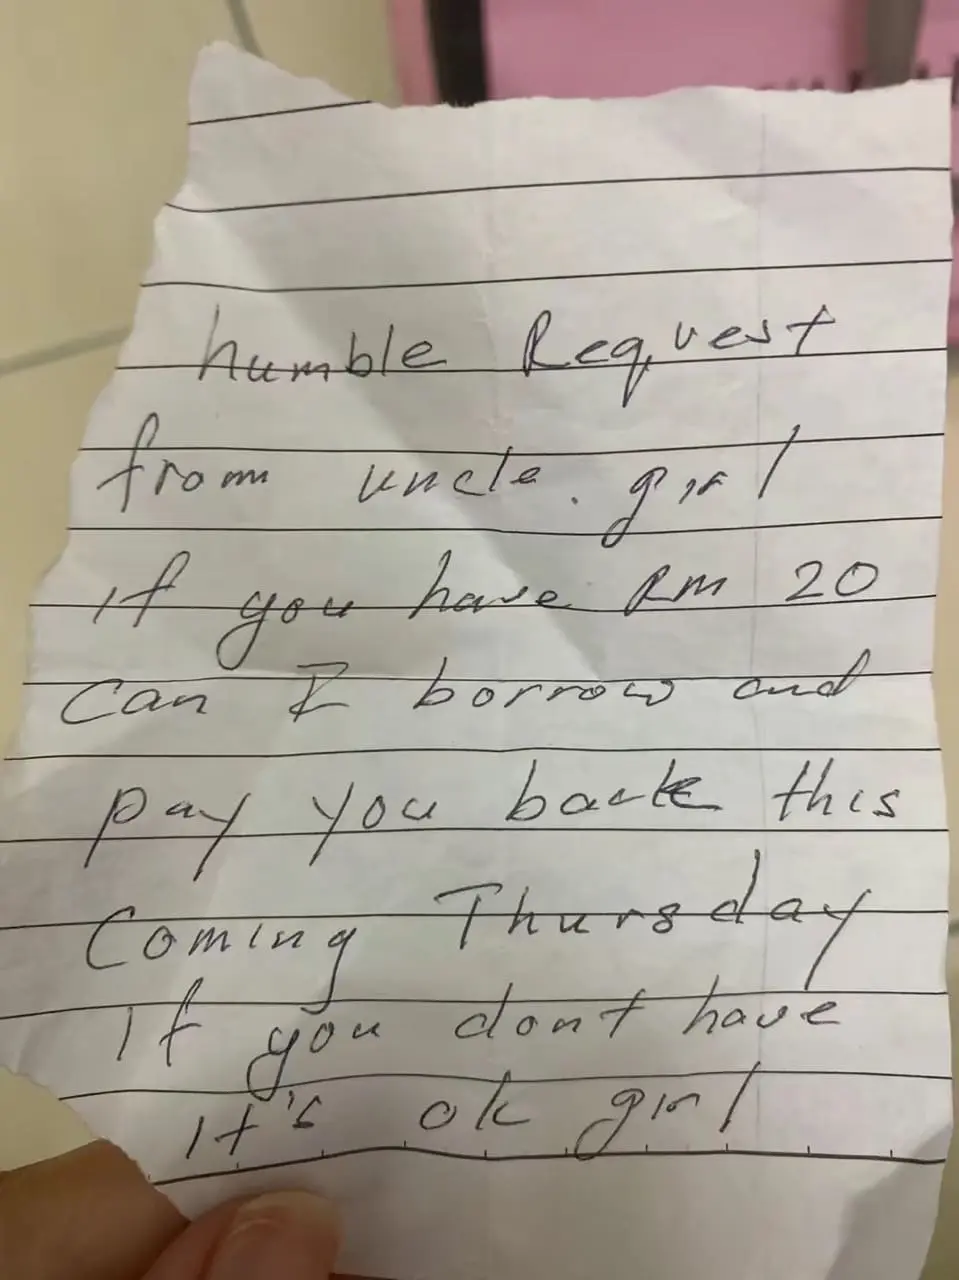 humble Request
from uncle. girl
If you have RM 20
Can I borrow and
pay you back this
Coming Thursday
If you dont have
It's ok girl